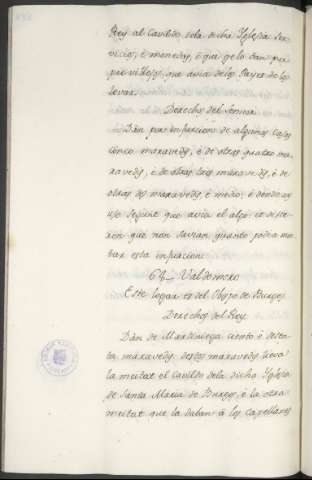 Rey al Cavildo dela dicha Iglesia ser-
vicios, é monedas, é que gelo dan por
previllejos, que avia delos Reyes de los
levar.
Derechos del Sennor
Dán por infurcion de algunas casas
cinco maravedis, é de otras quatro ma-
ravedis, é de otras tres maravedis, é de
otras dos maravedis, é medio, é dende ay-
uso segunt que avia el algo: et dixe-
ron que non savian quanto podia mon-
tar esta infurcion.
64_ Valdemoro
Este logar es del Obispo de Burgos
Derechos del Rey
Dán de Martiniega ciento é
ta maravedis, destos maravedis lieva
la meitat el Cavildo dela dicha Iglesia
de Santa Maria de Burgos, é la otra
meitat que la daban á los Capellanes